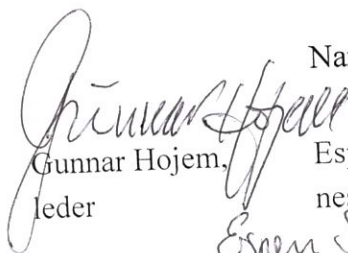 Nar
Gunnar Hojem
Gunnar Hojem, Esp
leder nes
Espen S